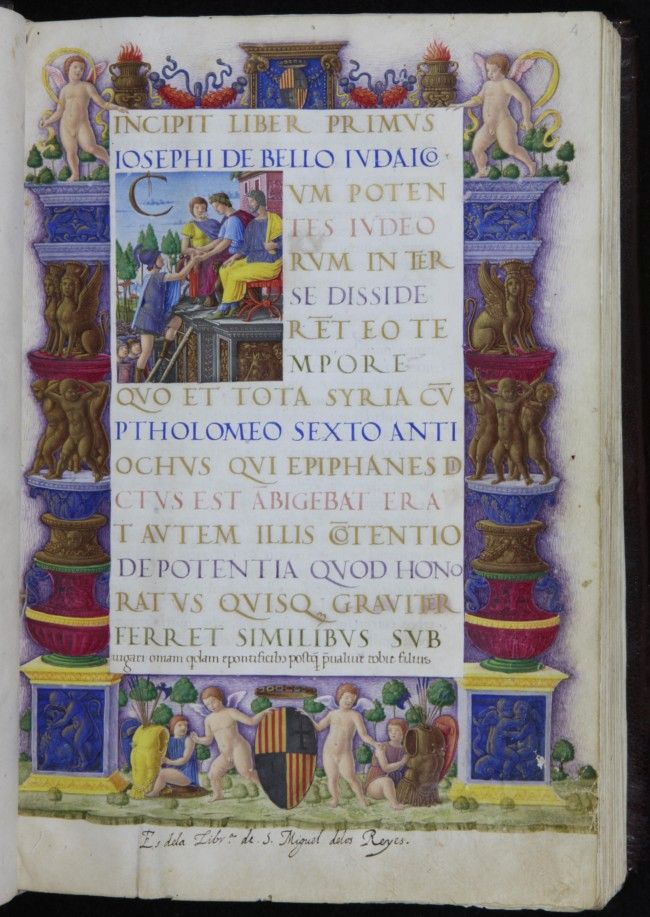 4
INCIPIT LIBER PRIMVS
IOSEPHI DE BELLO IVDAICO
C
VM POTEN
TES IVDEO
RVM IN TER
SE DISSIDE
RĒT EO TE
MPORE
QVO ET TOTA SYRIA CV̄
PTHOLOMEO SEXTO ANTI
OCHVS QVI EPIPHANES DI
CTVS EST ABIGEBAT ERA
T AVTEM ILLIS CŌTENTIO
DE POTENTIA QVOD HONO
RATVS QVISQ GRAVITER
FERRET SIMILIBVS SVB
Es dela Libr.ª de S. Miguel delos Reyes.